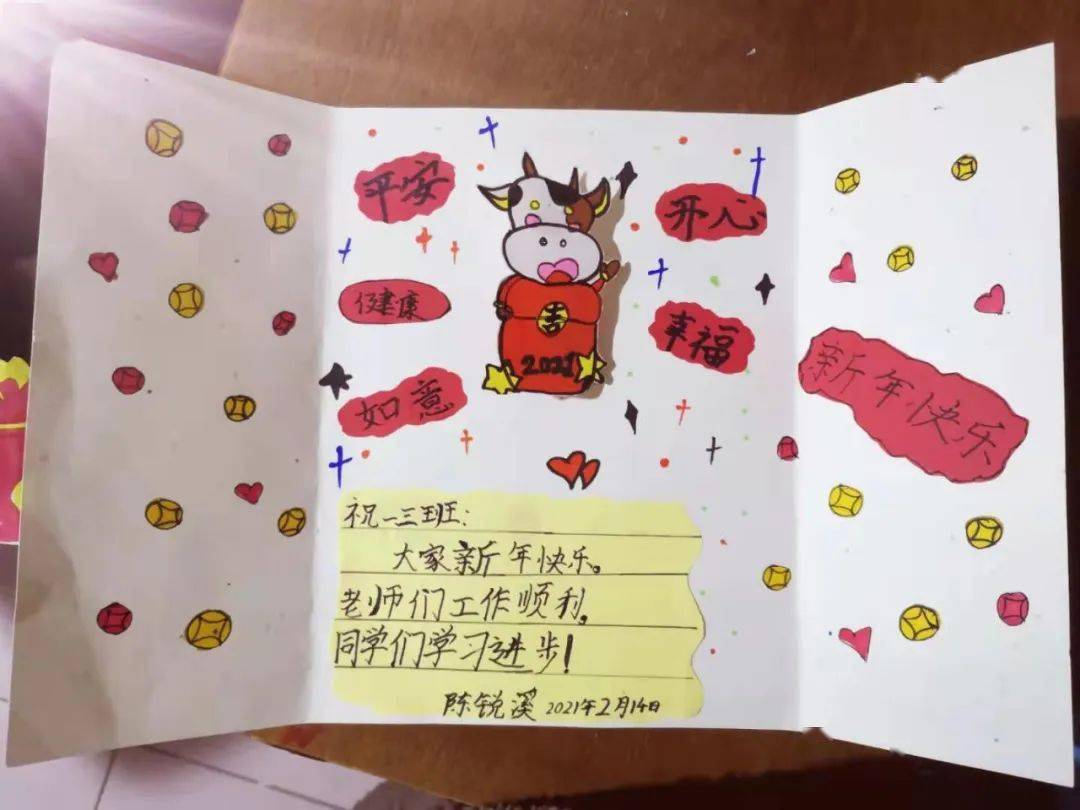 平安
健康
如意
吉
2021
开心
幸福
新年快乐
祝一三班:
大家新年快乐。
老师们工作顺利,
同学们学习进步!
陈锐溪 2021年2月14日